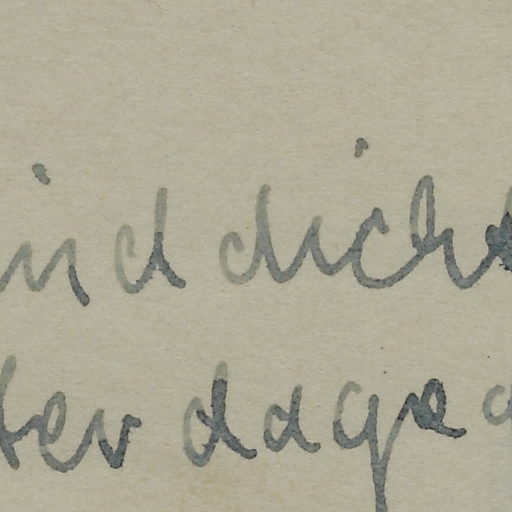 ind dicht
ter dage